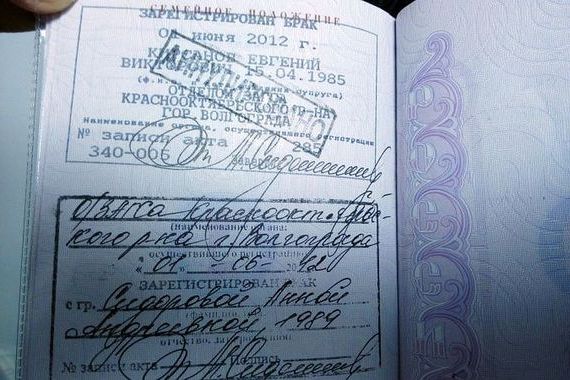 СЕМЕЙНОЕ ПОЛОЖЕНИЕ
ЗАРЕГИСТРИРОВАН БРАК
ИЮНЯ 2012 г.
ЕВГЕНИЙ
15.04.1985
КРАСНООКТЯБРЬСКОГО Р-НА
ГОР. ВОЛГОГРАДА
Наименование органа, осуществившего регистрацию
№ записи акта 285
340-006
ОЗАГСа Краснооктябрьс-
кого р-на г. Волгограда
(наименование органа,
осуществившего регистрацию)
"01" - 06 - 2012
ЗАРЕГИСТРИРОВАН БРАК
с гр. Сидоровой Анной
Андреевной, 1989
отчество, дата рождения
№ записи акта Подпись